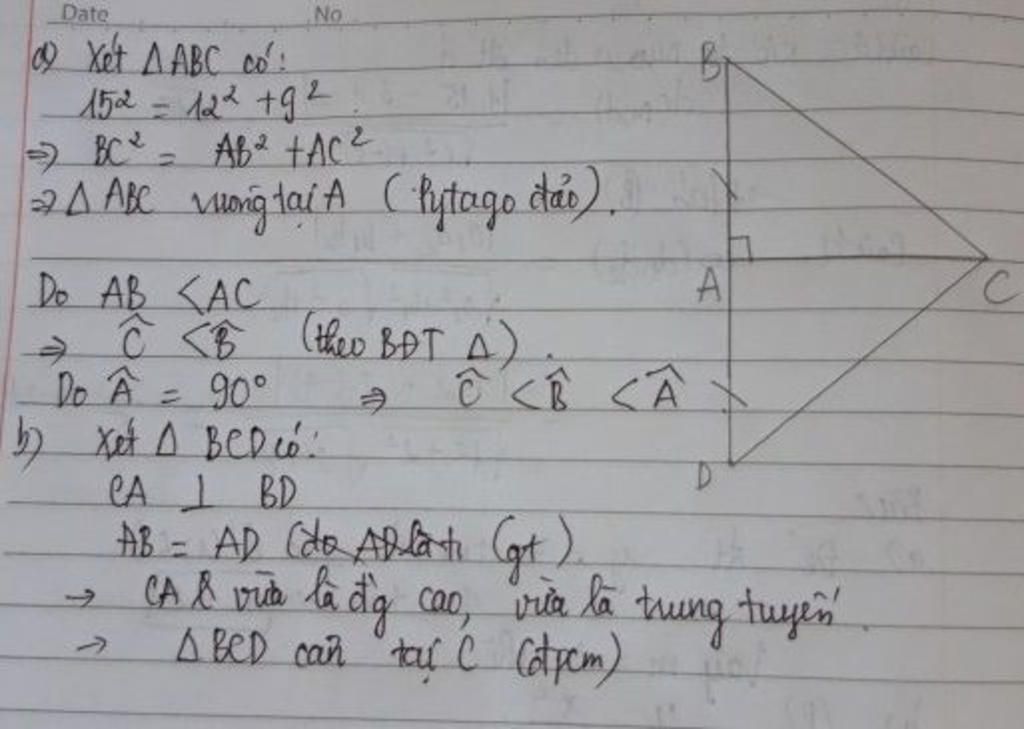 Date No
a) Xét Δ ABC có:
15² = 12² + 9²
⇒ BC² = AB² + AC²
⇒ Δ ABC vuông tại A (Pytago đảo).
Do AB < AC
⇒ Ĉ < B̂ (theo BĐT Δ).
Do Â = 90° ⇒ Ĉ < B̂ < Â
b) Xét Δ BCD có:
CA ⊥ BD
AB = AD (gt)
→ CA vừa là đ'g cao, vừa là trung tuyến.
→ Δ BCD cân tại C (đpcm)
B
A
C
D